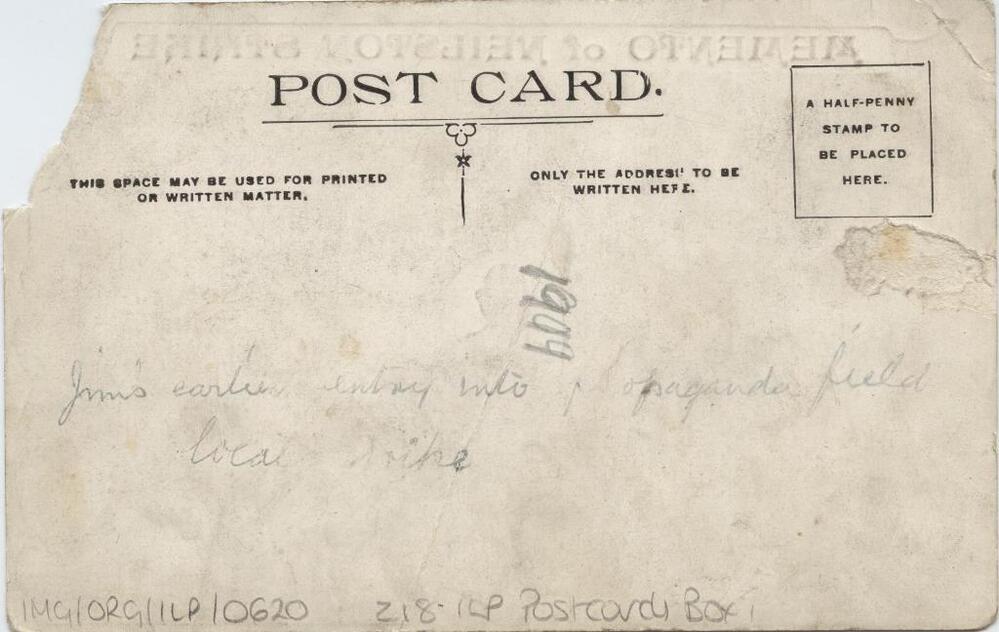 MEMENTO of NEILSTON STRIKE
POST CARD.
THIS SPACE MAY BE USED FOR PRINTED
OR WRITTEN MATTER.
ONLY THE ADDRESS TO BE
WRITTEN HERE.
A HALF-PENNY
STAMP TO
BE PLACED
HERE.
1909
Jim's earlier entry into propaganda field
local strike
IMG/ORG/ILP/0620 Z18-ILP Postcards Box 1